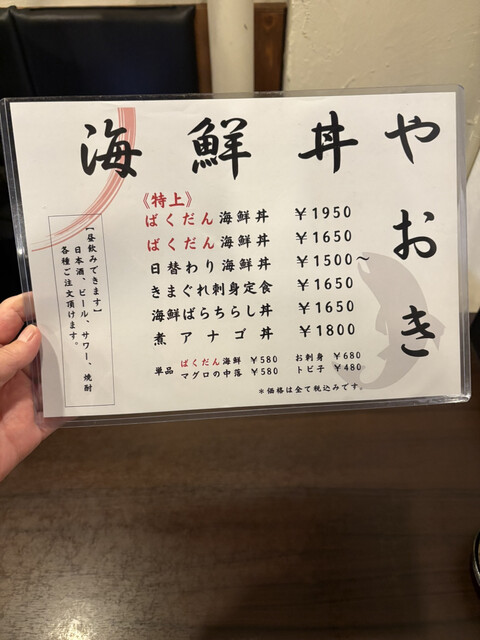 海鮮丼
やおき
《特上》
ばくだん海鮮丼 ￥1950
ばくだん海鮮丼 ￥1650
日替わり海鮮丼 ￥1500～
きまぐれ刺身定食 ￥1650
海鮮ばらちらし丼 ￥1650
煮アナゴ丼 ￥1800
単品 ばくだん海鮮 ￥580 お刺身 ￥680
マグロの中落 ￥580 トビ子 ￥480
＊価格は全て税込みです。
【昼飲みできます】
日本酒、ビール、サワー、焼酎
各種ご注文頂けます。